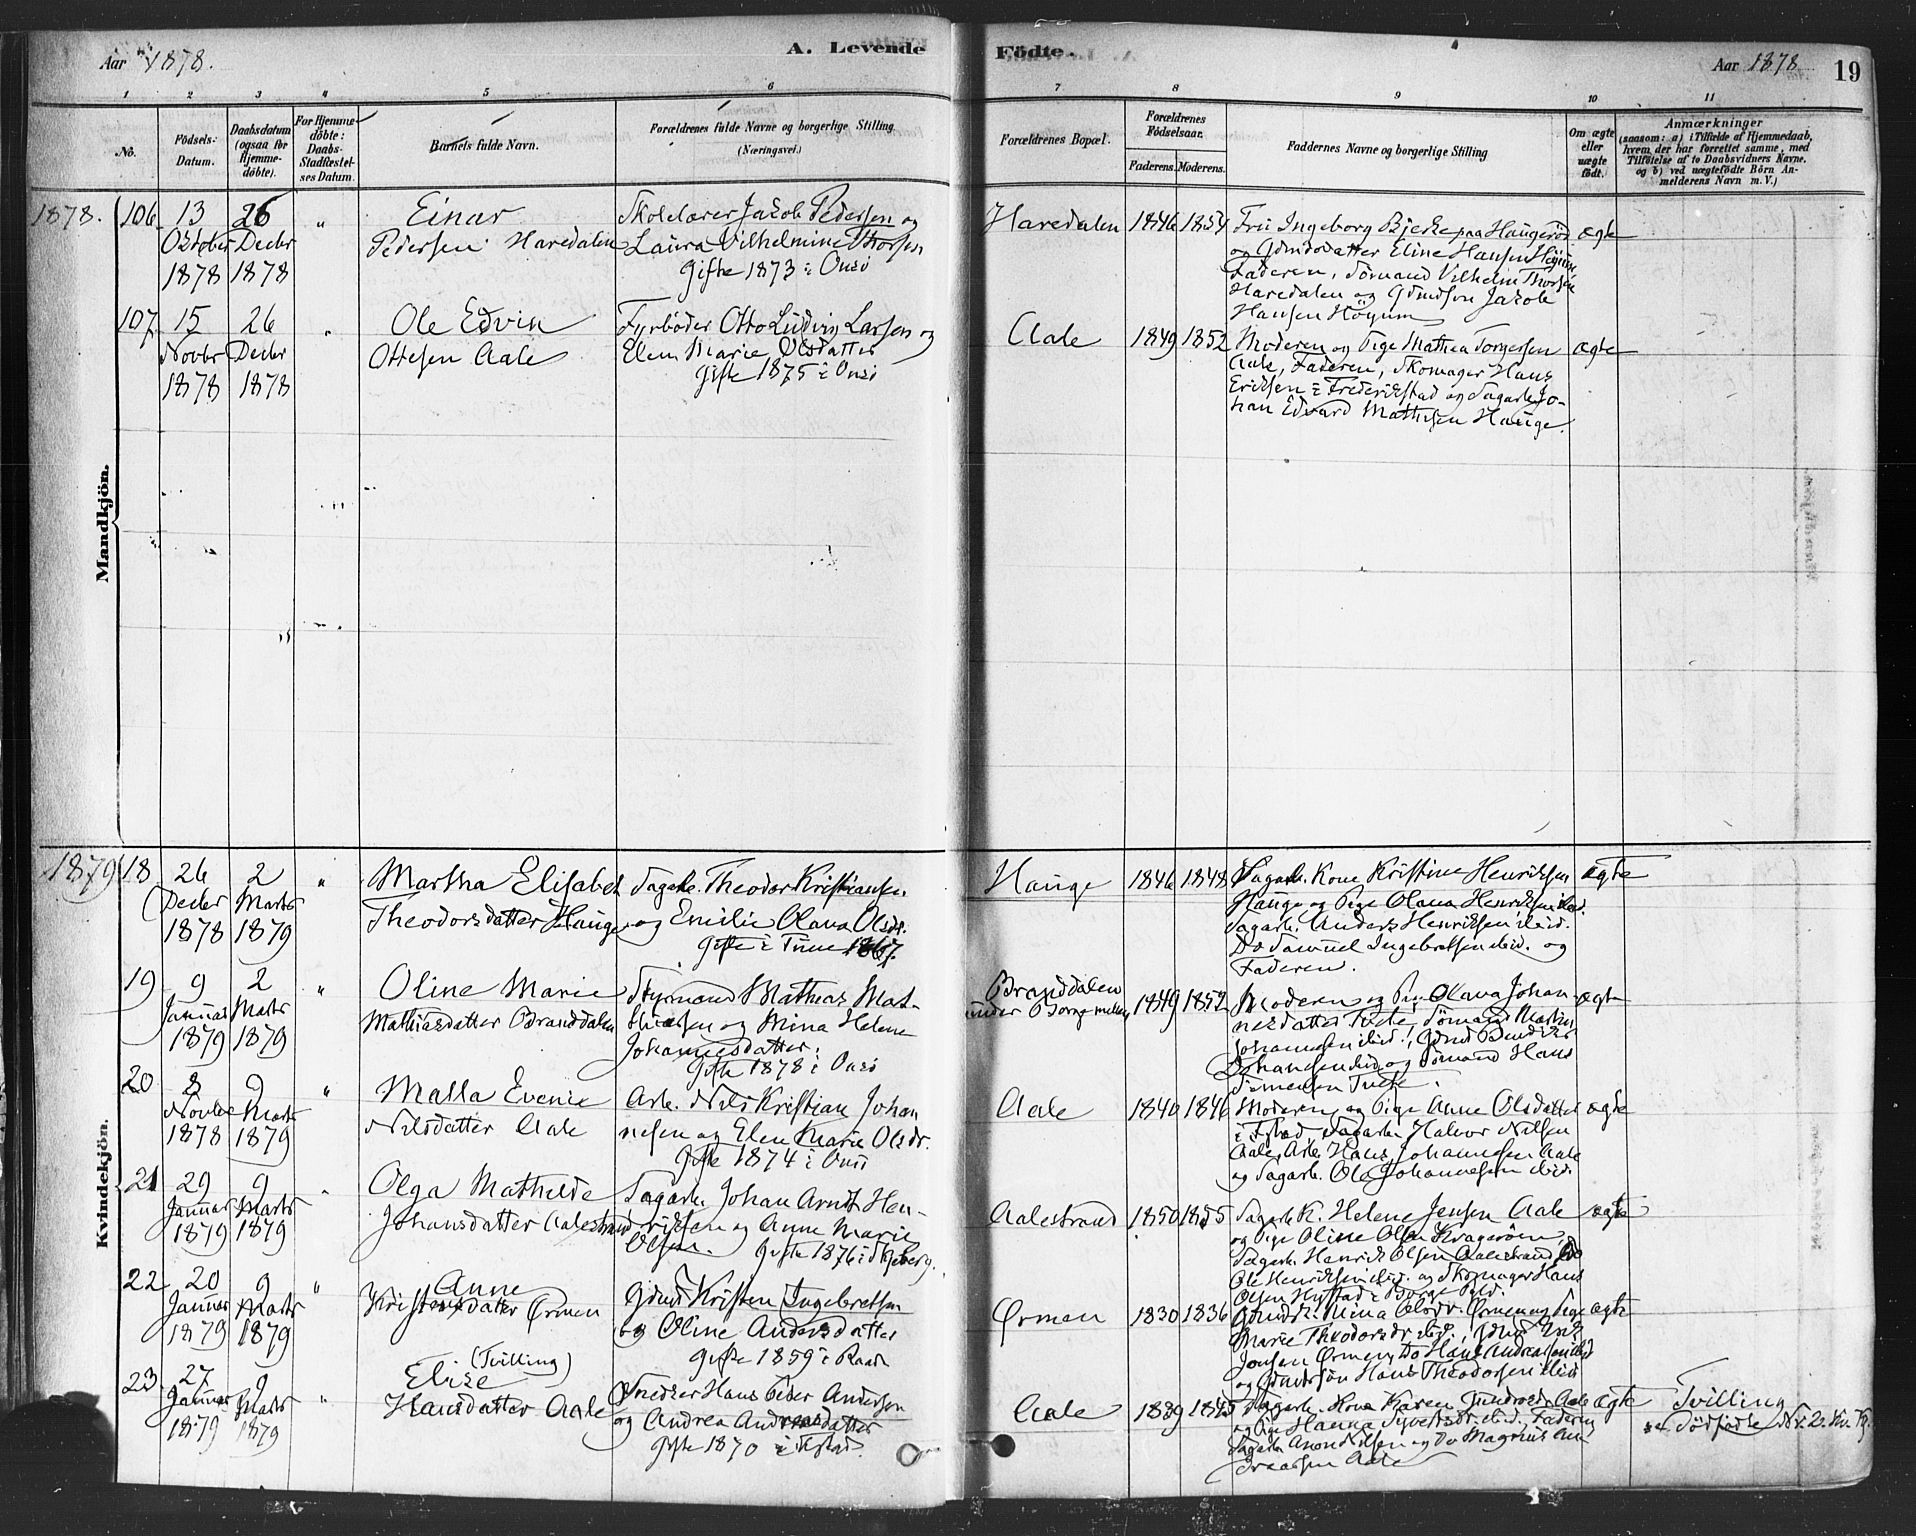 Aar 1878.
A. Levende
Födte.
Aar 1878
19
1 2 3 4 5 6 7 8 9 10 11
No.
Födsels-Datum.
Daabsdatum (ogsaa for Hjemmedöbte).
For Hjemmedöbte: Daabs-Stadfæstelses Datum.
Barnets fulde Navn.
Forældrenes fulde Navne og borgerlige Stilling (Næringsvei.)
Forældrenes Bopæl.
Forældrenes Födselsaar.
Faderens. Moderens.
Faddernes Navne og borgerlige Stilling
Om ægte eller uægte födt.
Anmærkninger
(saasom: a) i Tilfælde af Hjemmedaab, hvem der har forrettet samme, med Tilföielse af to Daabsvidners Navne, og b) ved uægtefödte Börn Anmelderens Navn m. V.)
Mandkjön.
1878. 106 13 Oktober 1878
26 Decbr 1878
"
Einar
Pedersen Haredalen
Skolelærer Jakob Pedersen og
Laura Vilhelmine Thorsen
Gifte 1873 i Onsö
Haredalen
1846 1854
Fru Ingeborg Bjerke paa Haugeröd
og Gdmdsdatter Eline Hansen Höyum
Faderen, Sömand Vilhelm Thorsen
Haredalen og Gdmdsön Jakob
Hansen Höyum
ægte
107 15 Novbr 1878
26 Decbr 1878
"
Ole Edvin
Ottesen Aale
Fyrböder Otto Ludvig Larsen og
Elen Marie Olsdatter
Gifte 1875 i Onsö
Aale
1849 1852
Moderen og Pige Mathea Torgersen
Aale, Faderen, Skomager Hans
Eriksen i Frederikstad og Sagarb. Jo-
han Edvard Mathisen Hauge.
ægte
Kvindekjön.
1879 18 26 Decbr 1878
2 Marts 1879
"
Martha Elisabet
Theodorsdatter Hauge
Sagarb. Theodor Kristiansen
og Emilie Olava Olsdr.
Gifte i Tune 1867.
Hauge
1846 1848
Sagarb. Kone Kristine Henriksen
Hauge og Pige Olava Henriksen ibid.
Sagarb. Anders Henriksen ibid.
Do Samuel Ingebretsen ibid. og
Faderen.
ægte
19 9 Januar 1879
2 Marts 1879
"
Oline Marie
Mathiasdatter Branddalen
Styrmand Mathias Mat-
hiassen og Mina Helene
Johannesdatter.
Gifte 1878 i Onsö
Branddalen
under
1849 1852
Moderen og Pige Olava Johan-
nesdatter
Johannesen ibid., Gdmd
Johansen ibid og Sömand Hans
ægte
20 8 Novbr 1878
9 Marts 1879
"
Malla Evenie
Nilsdatter Aale
Arb. Nils Kristian Johan
nesen og Elen Marie Olsdr.
Gifte 1874 i Onsö
Aale
1840 1846
Moderen og Pige Anne Olsdatter
i Fstad, Sagarb. Halvor Nilsen
Aale, Arb. Hans Johannesen Aale
og Sagarb. Ole Johannesen ibid.
ægte
21 29 Januar 1879
9 Marts 1879
"
Olga Mathilde
Johansdatter Aalestrand
Sagarb. Johan Arndt Hen-
riksen og Anne Marie
Olsen. Gifte 1876 i Skjeberg.
Aalestrand
1850 1855
Sagarb. K. Helene Jensen Aale
og Pige Oline Olsen Krageröen
Sagarb. Henrik Olsen Aalestrand Do
Ole Henriksen ibid. og Skomager Hans
Olsen i Borge
ægte
22 20 Januar 1879
9 Marts 1879
"
Anne
Kristensdatter Ørmen
Gdmd Kristen Ingebretsen
og Oline Andersdatter
Gifte 1859 i Raade
Ørmen
1830 1836
Gdmdk. Mina Olsdr. Ørmen og Pige
Marie Theodorsdr. ibid., Gdmd
Jensen Ørmen, Do Hans Andreassen ibid
og Gdmdsön Hans Theodorsen ibid
ægte
23 27 Januar 1879
9 Marts 1879
"
Elise (Tvilling)
Hansdatter Aale
Snedker Hans Peder Andersen
og Andrea Andreasdatter
Gifte 1870 i Fstad.
Aale
1839 1845
Sagarb. Kone Karen Aale
og Pige Hanna ibid., Faderen
Sagarb. Aron Nilsen og Do Magnus An-
dreassen Aale
ægte
Tvilling
Dödfödte